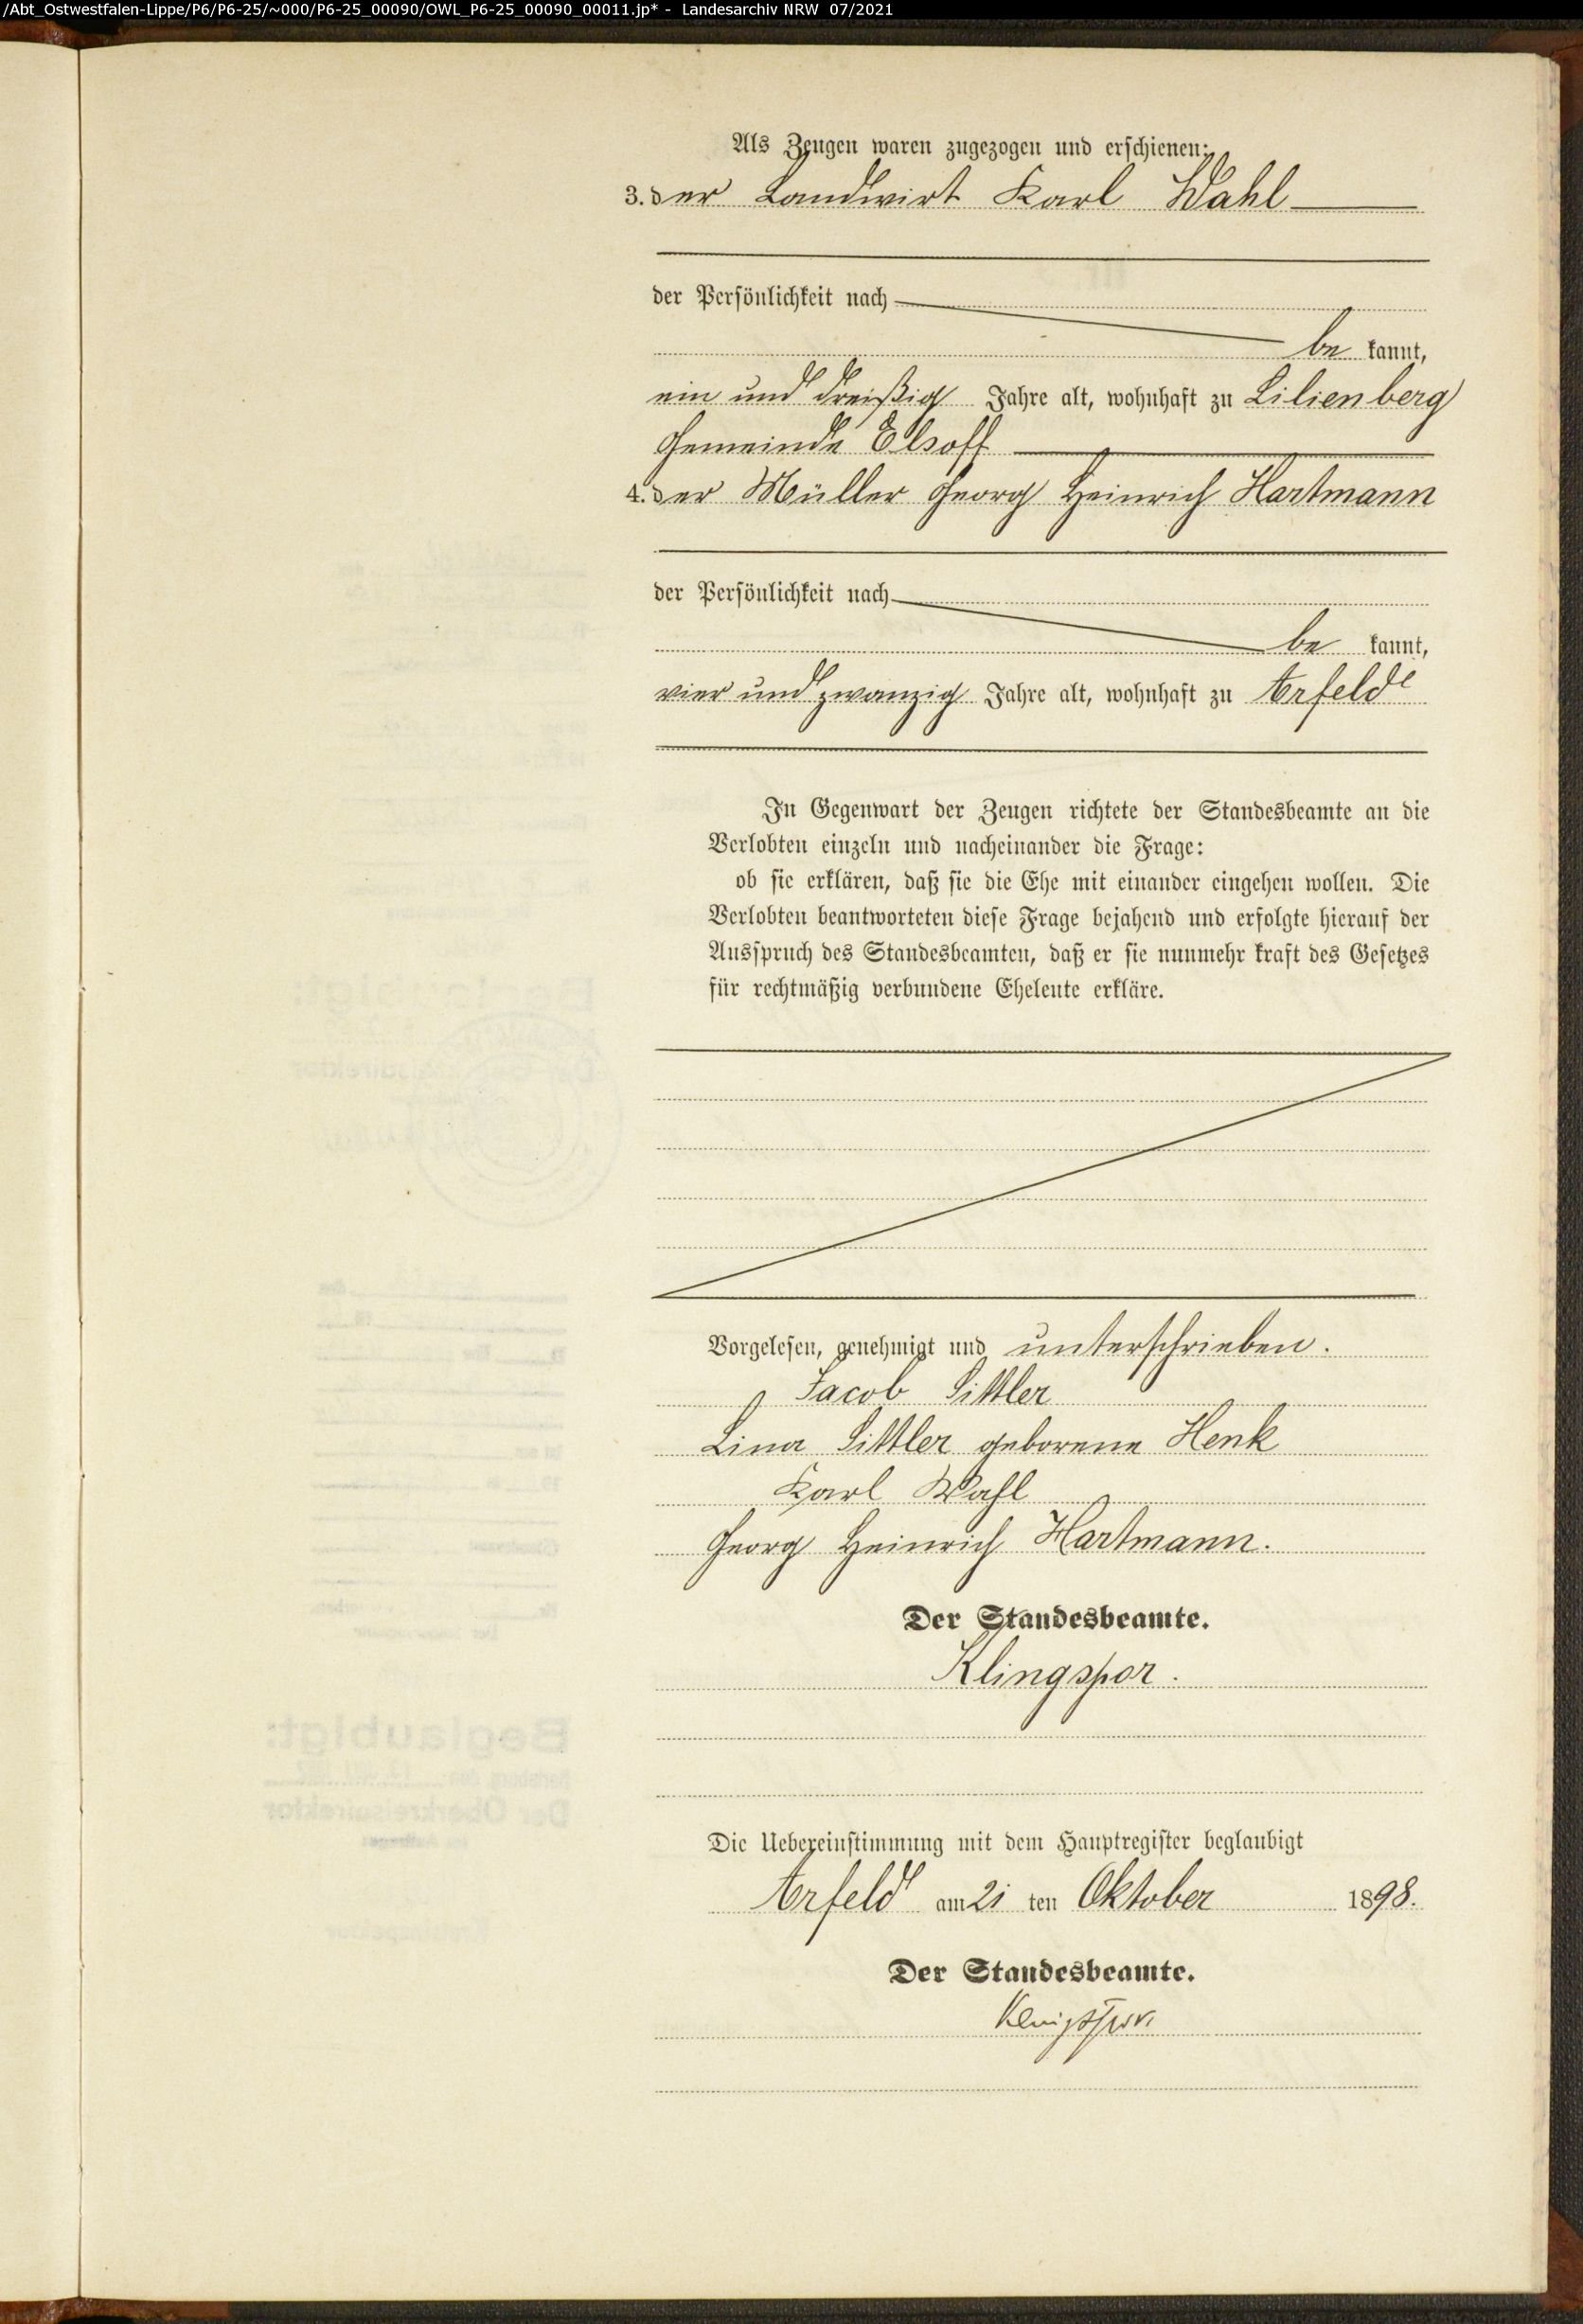 /Abt_Ostwestfalen-Lippe/P6/P6-25/~000/P6-25_00090/OWL_P6-25_00090_00011.jp* - Landesarchiv NRW 07/2021
Als Zeugen waren zugezogen und erschienen:
3. der Landwirt Karl Wahl
der Persönlichkeit nach
be kannt,
ein und dreißig Jahre alt, wohnhaft zu Lilienberg
Gemeinde Elsoff
4. der Müller Georg Heinrich Hartmann
der Persönlichkeit nach
be kannt,
vier und zwanzig Jahre alt, wohnhaft zu Arfeld
In Gegenwart der Zeugen richtete der Standesbeamte an die
Verlobten einzeln und nacheinander die Frage:
ob sie erklären, daß sie die Ehe mit einander eingehen wollen. Die
Verlobten beantworteten diese Frage bejahend und erfolgte hierauf der
Ausspruch des Standesbeamten, daß er sie nunmehr kraft des Gesetzes
für rechtmäßig verbundene Eheleute erkläre.
Vorgelesen, genehmigt und unterschrieben.
Jacob Sittler
Lina Sittler geborene Henk
Karl Wahl
Georg Heinrich Hartmann.
Der Standesbeamte.
Klingspor.
Die Uebereinstimmung mit dem Hauptregister beglaubigt
Arfeld am 21 ten Oktober 1898.
Der Standesbeamte.
Klingspor.
Beglaubigt:
Der Oberkreisdirektor